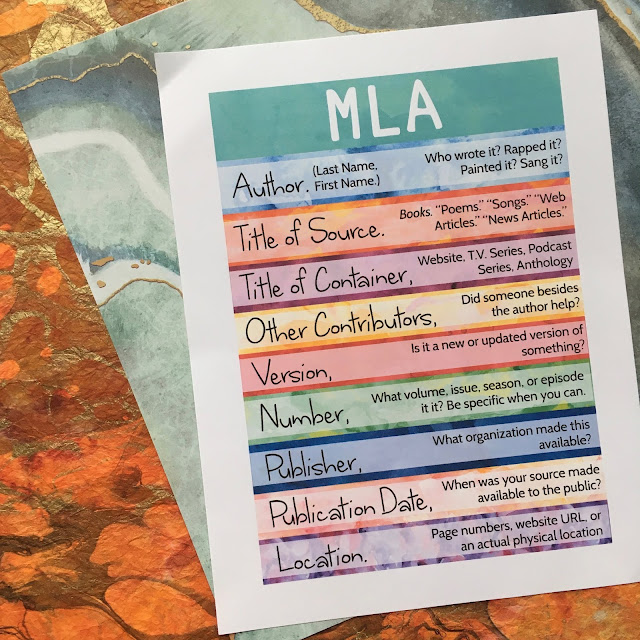 MLA
Author. (Last Name, First Name.)
Who wrote it? Rapped it?
Painted it? Sang it?
Title of Source.
Books. “Poems.” “Songs.” “Web
Articles.” “News Articles.”
Title of Container,
Website, T.V. Series, Podcast
Series, Anthology
Other Contributors,
Did someone besides
the author help?
Version,
Is it a new or updated version of
something?
Number,
What volume, issue, season, or episode
it it? Be specific when you can.
Publisher,
What organization made this
available?
Publication Date,
When was your source made
available to the public?
Location.
Page numbers, website URL, or
an actual physical location